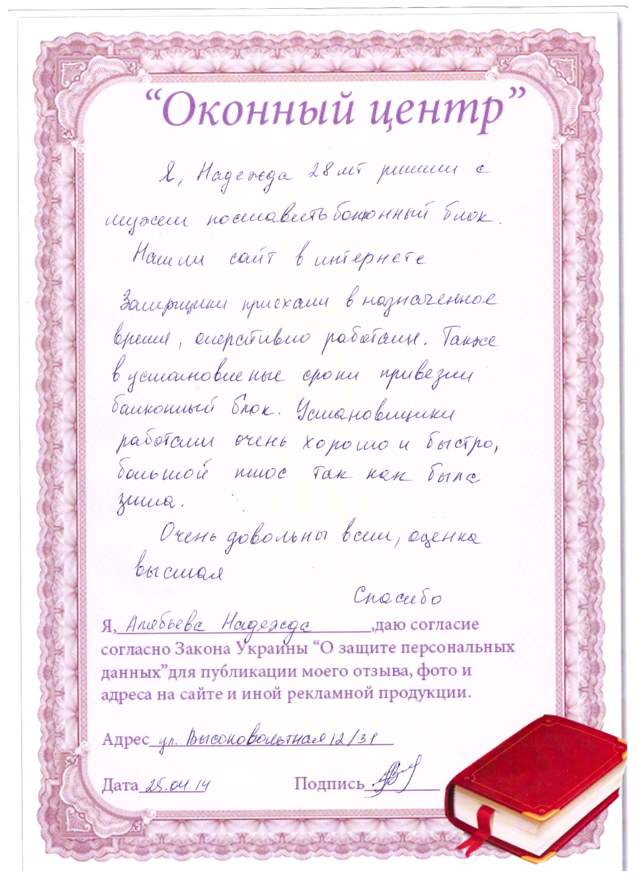 “Оконный центр”
Я, Надежда 28 лет решили с
мужем поставить балконный блок.
Нашли сайт в интернете
Замерщики приехали в назначенное
время, оперативно работали. Также
в установленные сроки привезли
балконный блок. Установщики
работали очень хорошо и быстро,
большой плюс так как была
зима.
Очень довольны всем, оценка
высшая
Спасибо
Я, Алябьева Надежда ,даю согласие
согласно Закона Украины “О защите персональных
данных”для публикации моего отзыва, фото и
адреса на сайте и иной рекламной продукции.
Адрес ул. Высоковольтная 12/31
Дата 25.04.14 Подпись